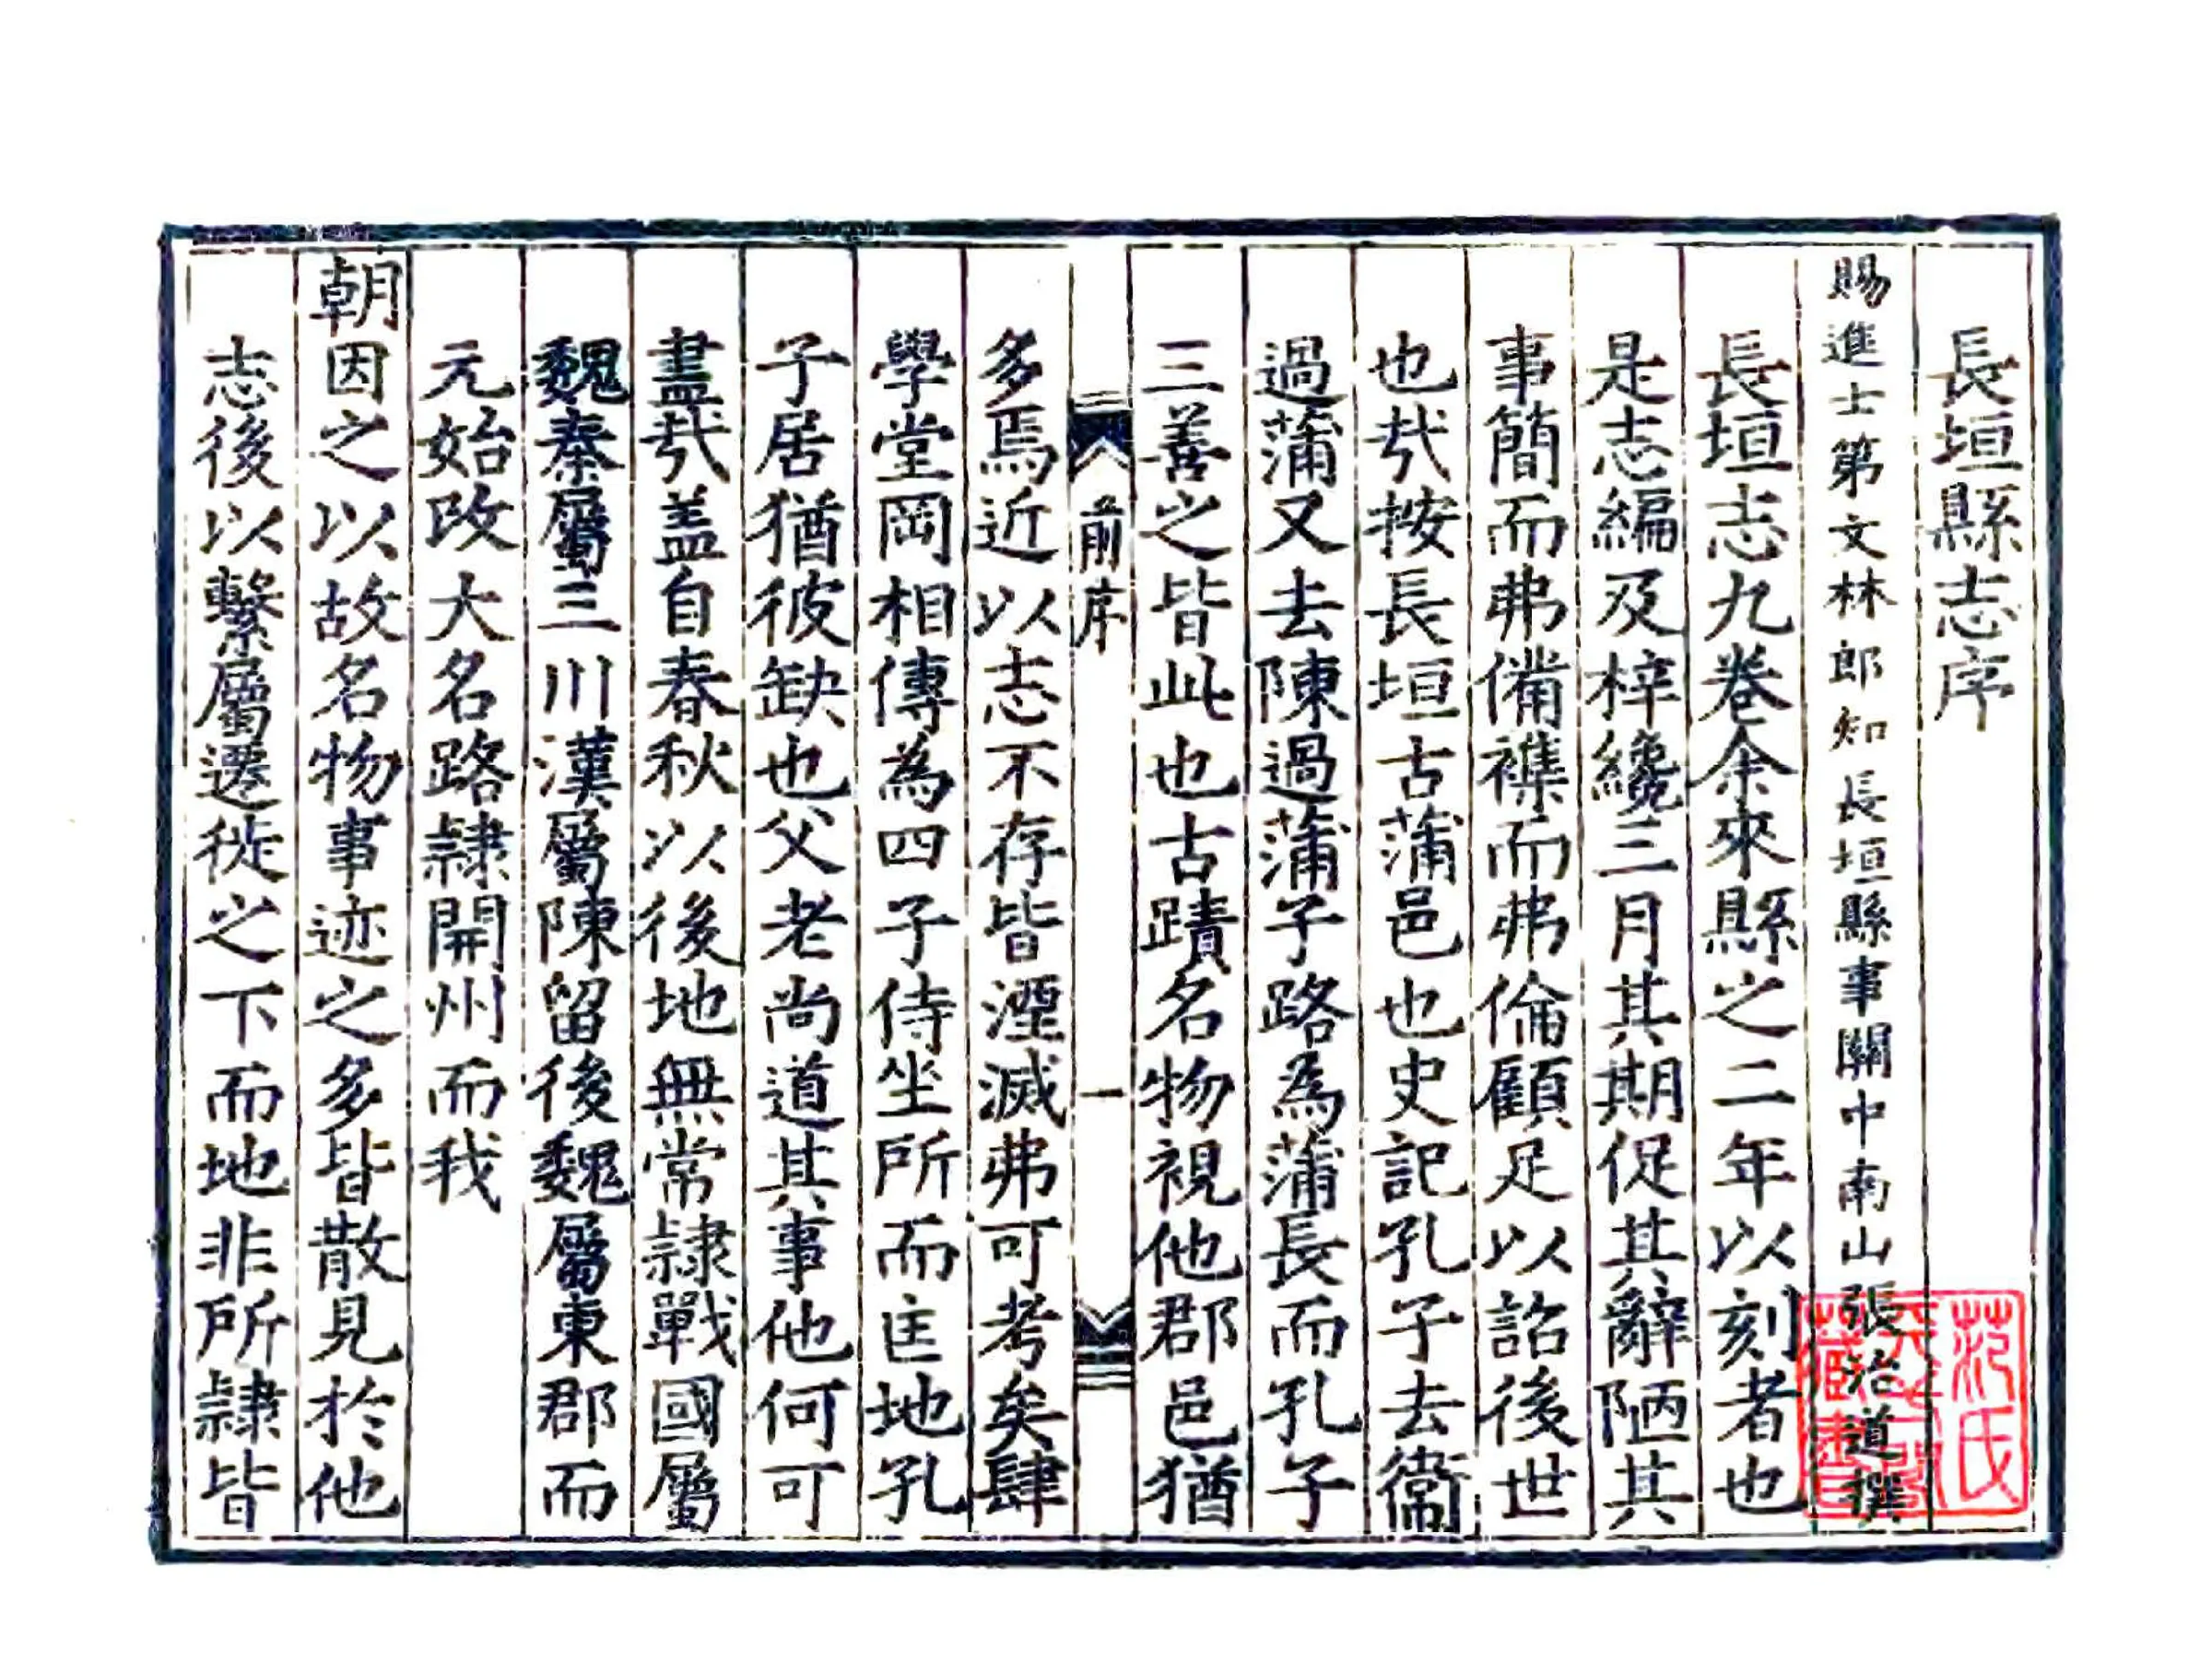 長垣縣志序
賜進士第文林郎知長垣縣事關中南山張治道撰
長垣志九卷余來縣之二年以刻者也
是志編及梓纔三月其期促其辭陋其
事簡而弗備襍而弗倫顧足以詔後世
也㢤按長垣古蒲邑也史記孔子去衞
過蒲又去陳過蒲子路為蒲長而孔子
三善之皆此也古蹟名物視他郡邑猶
前序
一
多焉近以志不存皆湮滅弗可考矣肆
學堂岡相傳為四子侍坐所而匡地孔
子居猶彼缺也父老尚道其事他何可
盡㢤盖自春秋以後地無常隷戰國屬
魏秦屬三川漢屬陳留後魏屬東郡而
元始改大名路隷開州而我
朝因之以故名物事迹之多皆散見於他
志後以繫屬遷徙之下而地非所隷皆
范氏天一閣藏書